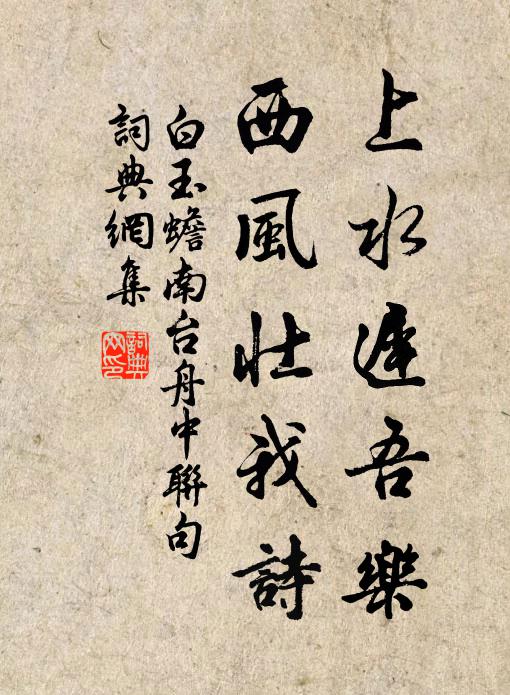 上水遲吾樂
西風壯我詩
白玉蟾南台舟中聯句
詞典網集
詞典網印